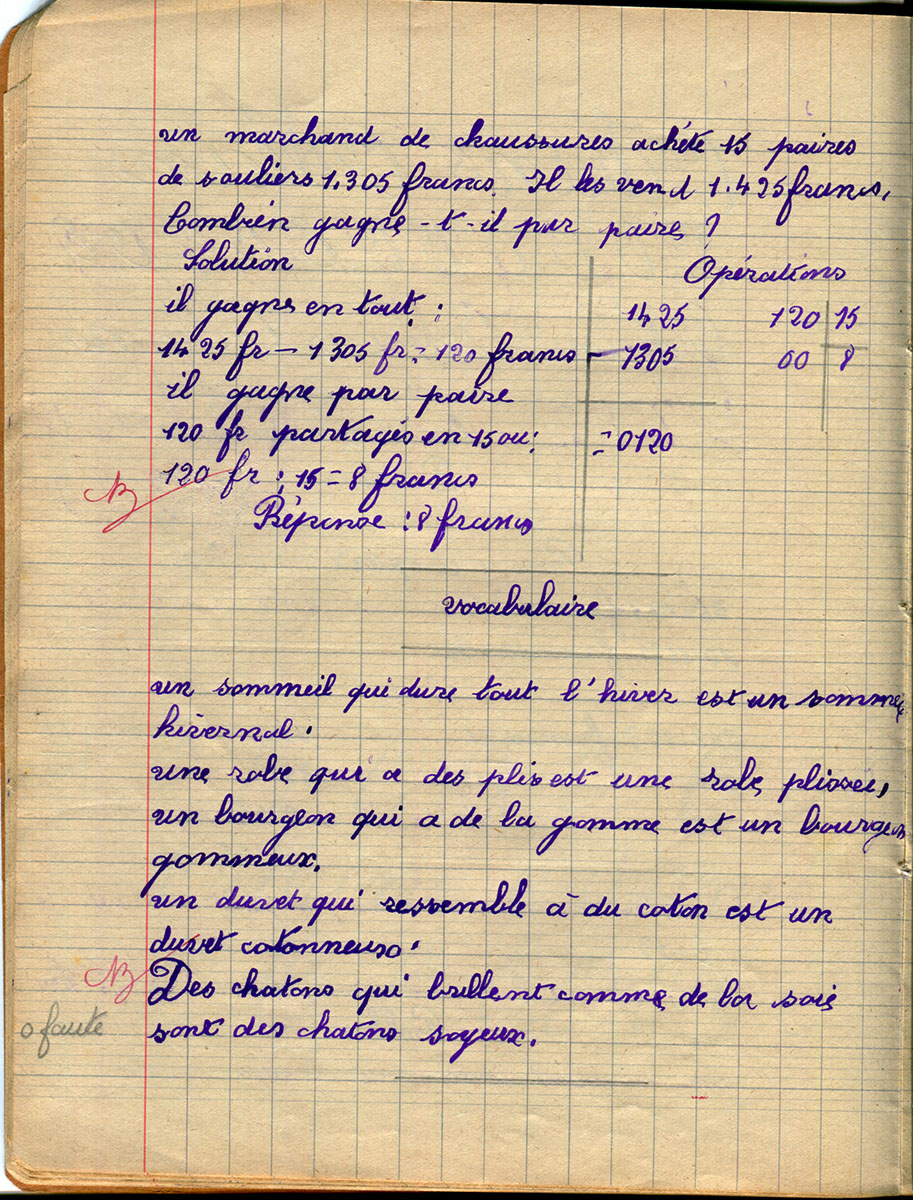 un marchand de chaussures achète 15 paires
de souliers 1.305 francs. Il les vend 1.425 francs.
Combien gagne-t-il par paires ?
Solution
Opérations
il gagne en tout :
1425 120 15
1425 fr – 1305 fr = 120 francs
– 1305 00 8
il gagne par paire
120 fr partagés en 15 ou :
= 0120
120 fr : 15 = 8 francs
NB
Réponse : 8 francs
vocabulaire
un sommeil qui dure tout l'hiver est un sommeil
hivernal.
une robe qui a des plis est une robe plissée,
un bourgeon qui a de la gomme est un bourgeon
gommeux.
un duvet qui ressemble à du coton est un
duvet cotonneux.
Des chatons qui brillent comme de la soie
sont des chatons soyeux.
0 faute